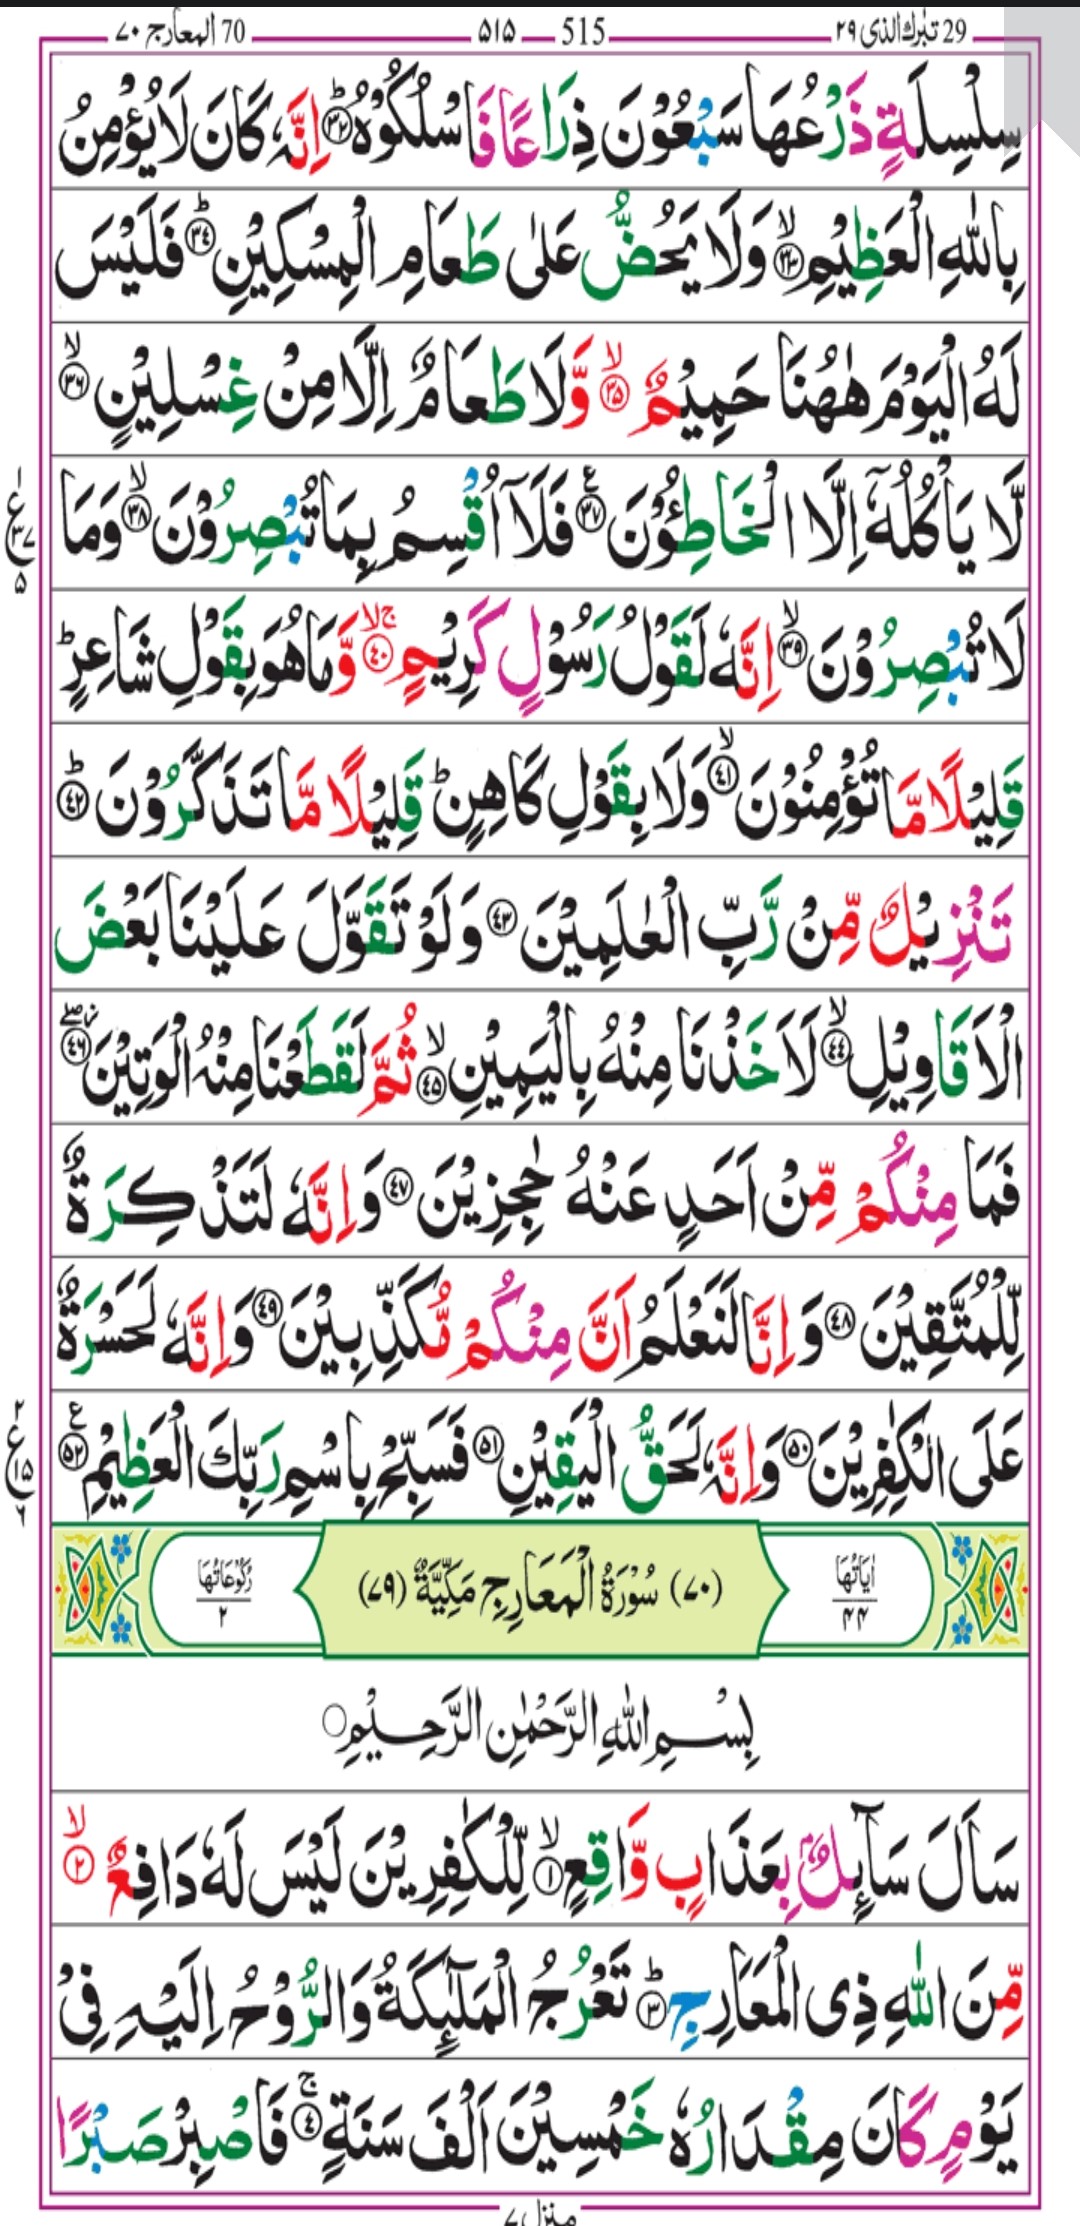 29 تبٰرك الذی ٢٩ 515 ۵۱۵ 70 المعارج ٧٠
سِلْسِلَةٍ ذَرْعُهَا سَبْعُوْنَ ذِرَاعًا فَاسْلُكُوْهُ ؕ﴿۳۲﴾ اِنَّهٗ كَانَ لَا يُؤْمِنُ
بِاللّٰهِ الْعَظِيْمِ ۙ﴿۳۳﴾ وَلَا يَحُضُّ عَلٰى طَعَامِ الْمِسْكِيْنِ ؕ﴿۳۴﴾ فَلَيْسَ
لَهُ الْيَوْمَ هٰهُنَا حَمِيْمٌ ۙ﴿۳۵﴾ وَّلَا طَعَامٌ اِلَّا مِنْ غِسْلِيْنٍ ۙ﴿۳۶﴾
لَّا يَاْكُلُهٗۤ اِلَّا الْخَاطِـُٔوْنَ ۠﴿۳۷﴾ فَلَاۤ اُقْسِمُ بِمَا تُبْصِرُوْنَ ۙ﴿۳۸﴾ وَمَا
ع
۱
۳۷
۵
لَا تُبْصِرُوْنَ ۙ﴿۳۹﴾ اِنَّهٗ لَقَوْلُ رَسُوْلٍ كَرِيْمٍ ۚۙ﴿۴۰﴾ وَّمَا هُوَ بِقَوْلِ شَاعِرٍ ؕ
قَلِيْلًا مَّا تُؤْمِنُوْنَ ۙ﴿۴۱﴾ وَلَا بِقَوْلِ كَاهِنٍ ؕ قَلِيْلًا مَّا تَذَكَّرُوْنَ ؕ﴿۴۲﴾
تَنْزِيْلٌ مِّنْ رَّبِّ الْعٰلَمِيْنَ ﴿۴۳﴾ وَلَوْ تَقَوَّلَ عَلَيْنَا بَعْضَ
الْاَقَاوِيْلِ ۙ﴿۴۴﴾ لَاَخَذْنَا مِنْهُ بِالْيَمِيْنِ ۙ﴿۴۵﴾ ثُمَّ لَقَطَعْنَا مِنْهُ الْوَتِيْنَ ۖ﴿۴۶﴾
فَمَا مِنْكُمْ مِّنْ اَحَدٍ عَنْهُ حٰجِزِيْنَ ﴿۴۷﴾ وَاِنَّهٗ لَتَذْكِرَةٌ
لِّلْمُتَّقِيْنَ ﴿۴۸﴾ وَاِنَّا لَنَعْلَمُ اَنَّ مِنْكُمْ مُّكَذِّبِيْنَ ﴿۴۹﴾ وَاِنَّهٗ لَحَسْرَةٌ
عَلَى الْكٰفِرِيْنَ ﴿۵۰﴾ وَاِنَّهٗ لَحَقُّ الْيَقِيْنِ ﴿۵۱﴾ فَسَبِّحْ بِاسْمِ رَبِّكَ الْعَظِيْمِ ۠﴿۵۲﴾
ع
۲
۱۵
۶
اٰيَاتُهَا ۴۴ (٧٠) سُوْرَةُ الْمَعَارِجِ مَكِّيَّةٌ (٧٩) رُكُوْعَاتُهَا ۲
بِسْمِ اللّٰهِ الرَّحْمٰنِ الرَّحِيْمِ ○
سَاَلَ سَآئِلٌۢ بِعَذَابٍ وَّاقِعٍ ۙ﴿۱﴾ لِّلْكٰفِرِيْنَ لَيْسَ لَهٗ دَافِعٌ ۙ﴿۲﴾
مِّنَ اللّٰهِ ذِى الْمَعَارِجِ ؕ﴿۳﴾ تَعْرُجُ الْمَلٰٓئِكَةُ وَالرُّوْحُ اِلَيْهِ فِىْ
يَوْمٍ كَانَ مِقْدَارُهٗ خَمْسِيْنَ اَلْفَ سَنَةٍ ۚ﴿۴﴾ فَاصْبِرْ صَبْرًا
منزل ٧